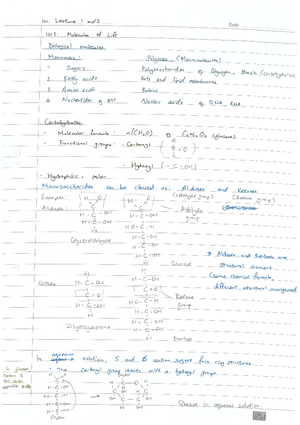 Lecture 1 and 2
Date
Molecules of Life
Biological molecules
Monomers: Polymers (Macromolecules)
1 Sugars Polysaccharides eg Glycogen, starch (carbohydrates)
2 Fatty acids Fats and lipid membranes
3 Amino acids Proteins
4 Nucleotides eg ATP Nucleic acids eg DNA, RNA
Carbohydrates
- Molecular formula: n(CH₂O) eg C₆H₁₂O₆ (glucose)
- Functional groups: - Carbonyl (C=O)
- Hydroxyl (-C-OH)
- Hydrophilic, polar
Monosaccharides can be classed as: Aldoses and Ketoses
(aldehyde group) (ketone group)
Example
Aldoses Aldehyde group
Glyceraldehyde Glucose
Aldoses and Ketoses are structural isomers
(same chemical formula,
different structural arrangement
Ketoses Ketone group
Dihydroxyacetone Fructose
In aqueous solution, 5 and 6 carbon sugars form ring structures.
- The carbonyl group reacts with a hydroxyl group
In glucose
opposite side
Glucose in aqueous solution